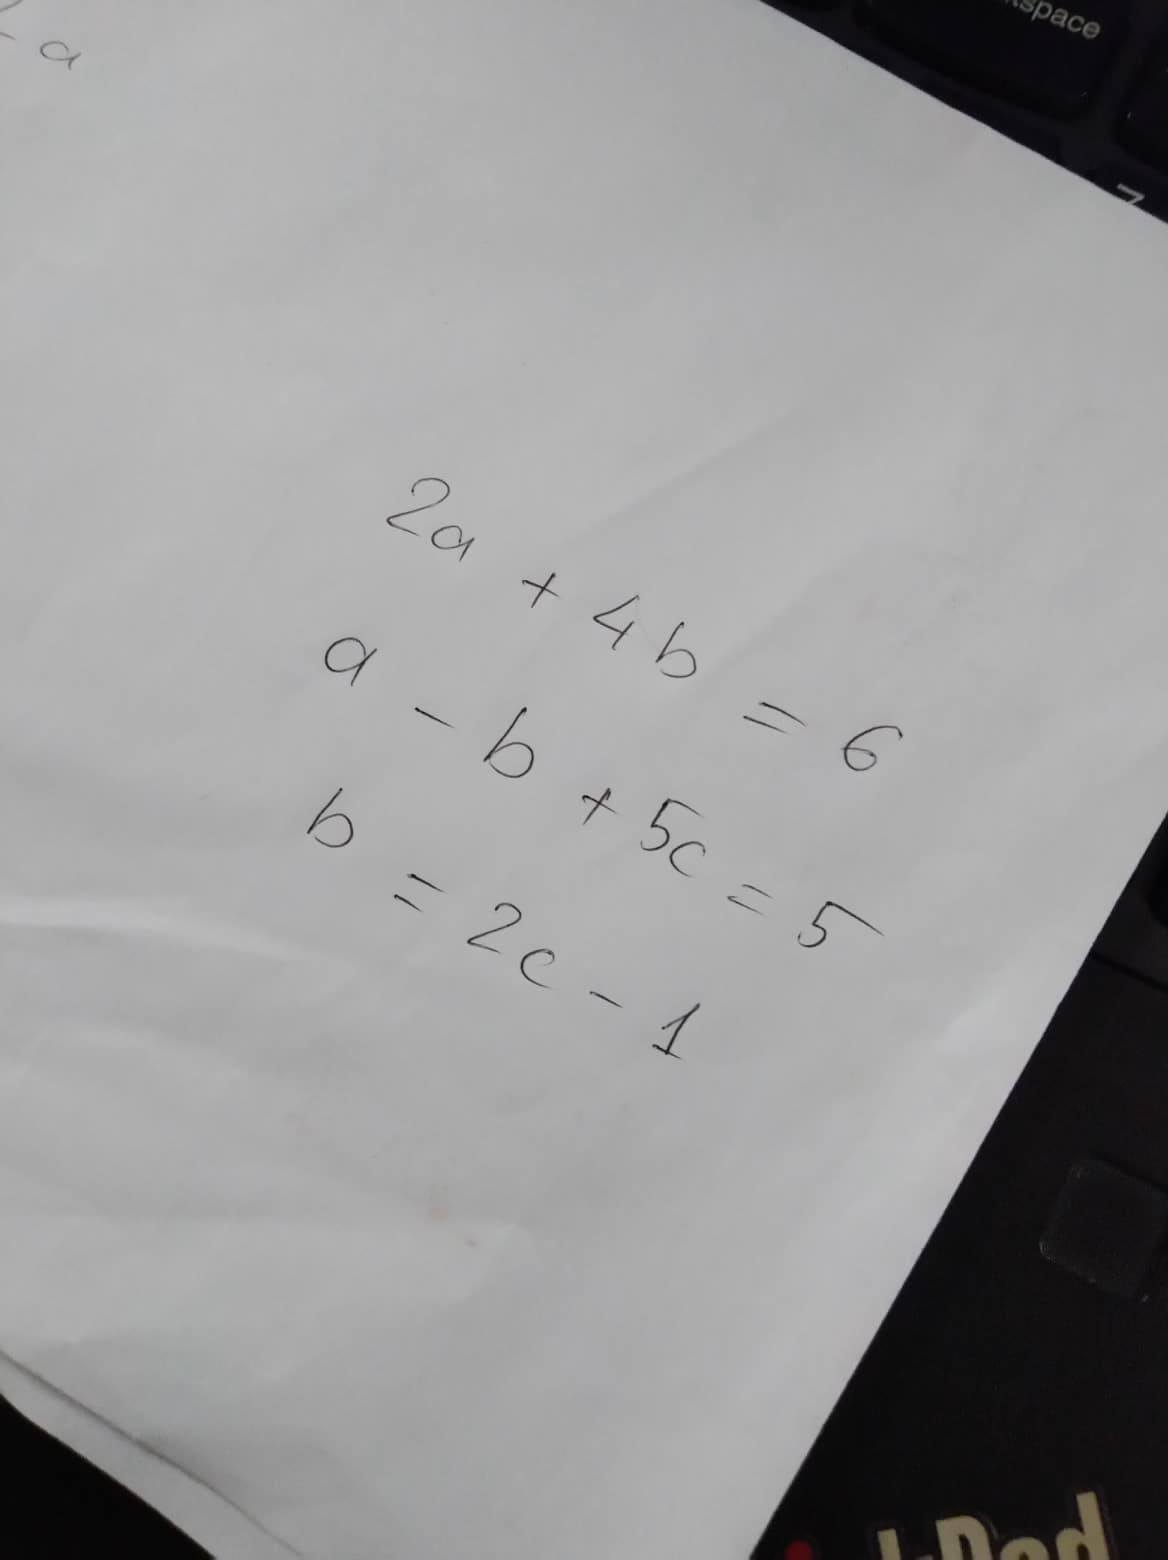 a
kspace
7
2a + 4b = 6
a - b + 5c = 5
b = 2c - 1